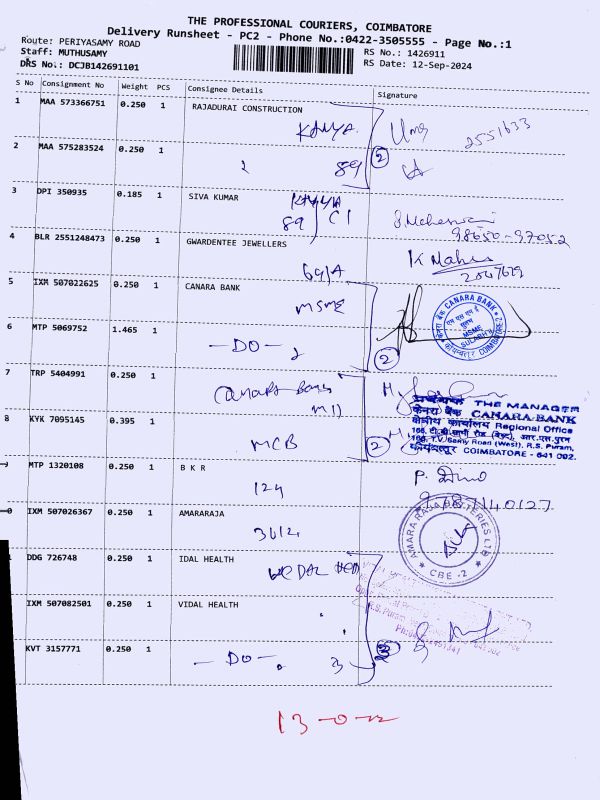 THE PROFESSIONAL COURIERS, COIMBATORE
Delivery Runsheet - PC2 - Phone No.:0422-3505555 - Page No.:1
Route: PERIYASAMY ROAD
RS No.: 1426911
Staff: MUTHUSAMY
RS Date: 12-Sep-2024
DRS No.: DCJB142691101
S No Consignment No Weight PCS Consignee Details Signature
1 MAA 573366751 0.250 1 RAJADURAI CONSTRUCTION
2551633
2 MAA 575283524 0.250 1
89 2
3 DPI 350935 0.185 1 SIVA KUMAR
89 C1
98650-97052
4 BLR 2551248473 0.250 1 GWARDENTEE JEWELLERS
69/A
5 IXM 507022625 0.250 1 CANARA BANK
MSME
केनरा बैंक CANARA BANK
MSME
SULABH
कोयम्बत्तूर COIMBATORE-2
6 MTP 5069752 1.465 1
-DO- 2
7 TRP 5404991 0.250 1
Canara Bank
THE MANAGER
केनरा बैंक CANARA BANK
क्षेत्रीय कार्यालय Regional Office
166, T.V. Samy Road (West), R.S. Puram,
कोयम्बत्तूर COIMBATORE - 641 002.
8 KYK 7095145 0.395 1
MCB 2
MTP 1320108 0.250 1 B K R
124
IXM 507026367 0.250 1 AMARARAJA
AMARA RAJA BATTERIES LTD
CBE-2
DDG 726748 0.250 1 IDAL HEALTH
IXM 507082501 0.250 1 VIDAL HEALTH
R.S. Puram
KVT 3157771 0.250 1
-DO- 3
13-0-